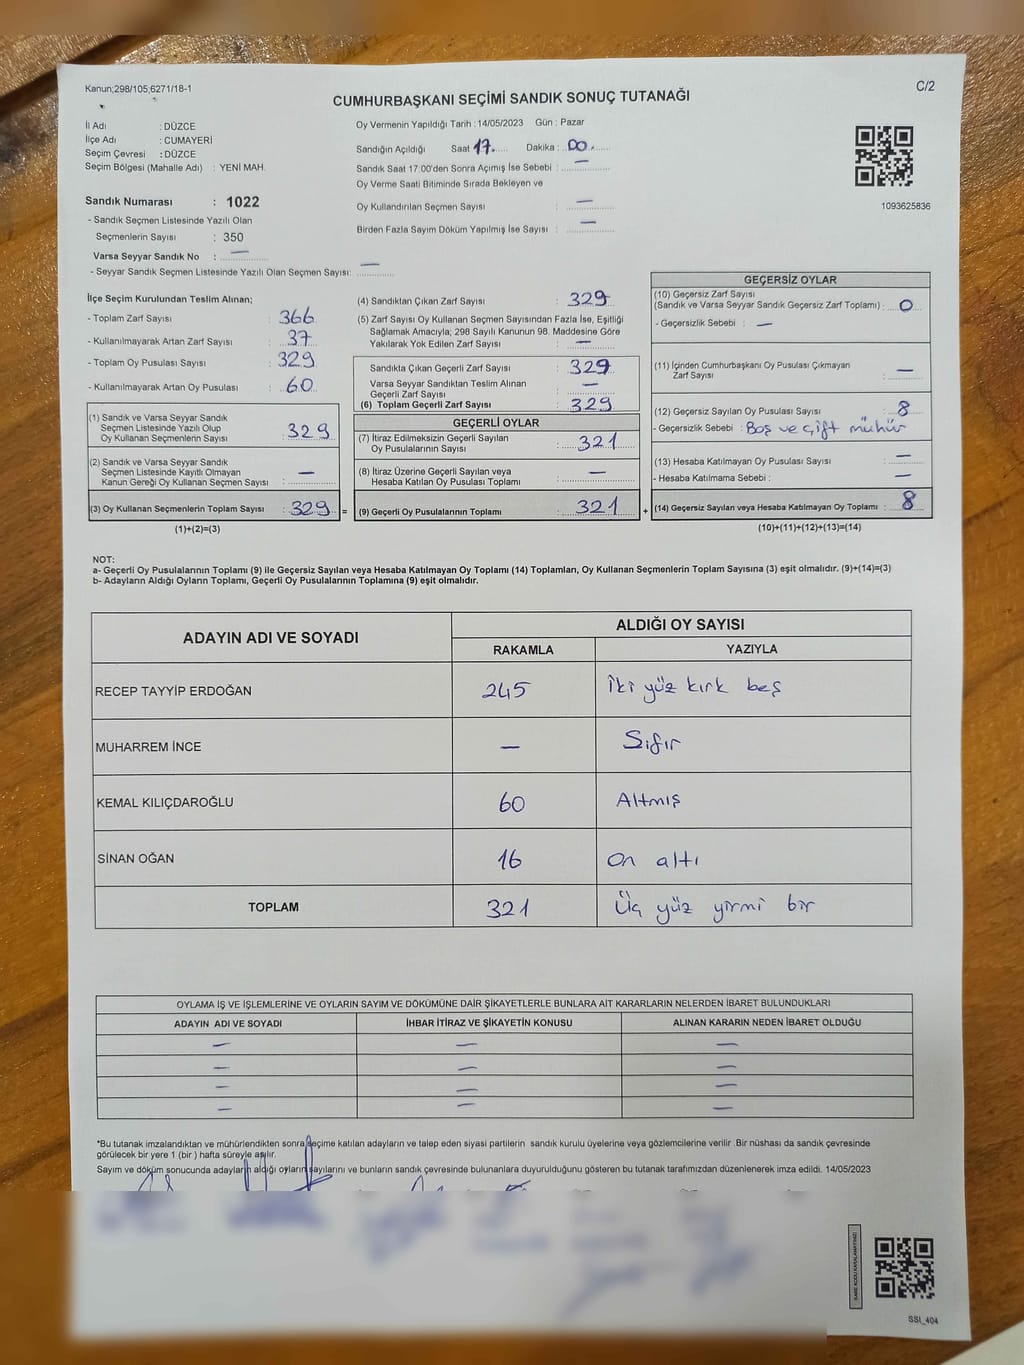 Kanun;298/105;6271/18-1
C/2
CUMHURBAŞKANI SEÇİMİ SANDIK SONUÇ TUTANAĞI
İl Adı : DÜZCE
İlçe Adı : CUMAYERİ
Seçim Çevresi : DÜZCE
Seçim Bölgesi (Mahalle Adı) : YENİ MAH.
Sandık Numarası : 1022
- Sandık Seçmen Listesinde Yazılı Olan
Seçmenlerin Sayısı : 350
Varsa Seyyar Sandık No : —
- Seyyar Sandık Seçmen Listesinde Yazılı Olan Seçmen Sayısı: —
Oy Vermenin Yapıldığı Tarih : 14/05/2023 Gün : Pazar
Sandığın Açıldığı Saat 17 Dakika : 00
Sandık Saat 17:00'den Sonra Açımış İse Sebebi : —
Oy Verme Saati Bitiminde Sırada Bekleyen ve
Oy Kullandırılan Seçmen Sayısı : —
Birden Fazla Sayım Döküm Yapılmış İse Sayısı : —
1093625836
İlçe Seçim Kurulundan Teslim Alınan;
- Toplam Zarf Sayısı : 366
- Kullanılmayarak Artan Zarf Sayısı : 37
- Toplam Oy Pusulası Sayısı : 329
- Kullanılmayarak Artan Oy Pusulası : 60
(1) Sandık ve Varsa Seyyar Sandık
Seçmen Listesinde Yazılı Olup
Oy Kullanan Seçmenlerin Sayısı : 329
(2) Sandık ve Varsa Seyyar Sandık
Seçmen Listesinde Kayıtlı Olmayan
Kanun Gereği Oy Kullanan Seçmen Sayısı : —
(3) Oy Kullanan Seçmenlerin Toplam Sayısı : 329 =
(1)+(2)=(3)
(4) Sandıktan Çıkan Zarf Sayısı : 329
(5) Zarf Sayısı Oy Kullanan Seçmen Sayısından Fazla İse, Eşitliği
Sağlamak Amacıyla; 298 Sayılı Kanunun 98. Maddesine Göre
Yakılarak Yok Edilen Zarf Sayısı : —
Sandıkta Çıkan Geçerli Zarf Sayısı : 329
Varsa Seyyar Sandıktan Teslim Alınan
Geçerli Zarf Sayısı : —
(6) Toplam Geçerli Zarf Sayısı : 329
GEÇERLİ OYLAR
(7) İtiraz Edilmeksizin Geçerli Sayılan
Oy Pusulalarının Sayısı : 321
(8) İtiraz Üzerine Geçerli Sayılan veya
Hesaba Katılan Oy Pusulası Toplamı : —
(9) Geçerli Oy Pusulalarının Toplamı : 321 +
GEÇERSİZ OYLAR
(10) Geçersiz Zarf Sayısı
(Sandık ve Varsa Seyyar Sandık Geçersiz Zarf Toplamı) : 0
- Geçersizlik Sebebi : —
(11) İçinden Cumhurbaşkanı Oy Pusulası Çıkmayan
Zarf Sayısı : —
(12) Geçersiz Sayılan Oy Pusulası Sayısı : 8
- Geçersizlik Sebebi : Boş ve çift mühür
(13) Hesaba Katılmayan Oy Pusulası Sayısı : —
- Hesaba Katılmama Sebebi : —
(14) Geçersiz Sayılan veya Hesaba Katılmayan Oy Toplamı : 8
(10)+(11)+(12)+(13)=(14)
NOT:
a- Geçerli Oy Pusulalarının Toplamı (9) ile Geçersiz Sayılan veya Hesaba Katılmayan Oy Toplamı (14) Toplamları, Oy Kullanan Seçmenlerin Toplam Sayısına (3) eşit olmalıdır. (9)+(14)=(3)
b- Adayların Aldığı Oyların Toplamı, Geçerli Oy Pusulalarının Toplamına (9) eşit olmalıdır.
ADAYIN ADI VE SOYADI ALDIĞI OY SAYISI
RAKAMLA YAZIYLA
RECEP TAYYİP ERDOĞAN 245 İki yüz kırk beş
MUHARREM İNCE — Sıfır
KEMAL KILIÇDAROĞLU 60 Altmış
SİNAN OĞAN 16 On altı
TOPLAM 321 Üç yüz yirmi bir
OYLAMA İŞ VE İŞLEMLERİNE VE OYLARIN SAYIM VE DÖKÜMÜNE DAİR ŞİKAYETLERLE BUNLARA AİT KARARLARIN NELERDEN İBARET BULUNDUKLARI
ADAYIN ADI VE SOYADI İHBAR İTİRAZ VE ŞİKAYETİN KONUSU ALINAN KARARIN NEDEN İBARET OLDUĞU
— — —
— — —
— — —
— — —
*Bu tutanak imzalandıktan ve mühürlendikten sonra seçime katılan adayların ve talep eden siyasi partilerin sandık kurulu üyelerine veya gözlemcilerine verilir .Bir nüshası da sandık çevresinde
görülecek bir yere 1 (bir ) hafta süreyle asılır.
Sayım ve döküm sonucunda adayların aldığı oyların sayılarını ve bunların sandık çevresinde bulunanlara duyurulduğunu gösteren bu tutanak tarafımızdan düzenlenerek imza edildi. 14/05/2023
SSI_404